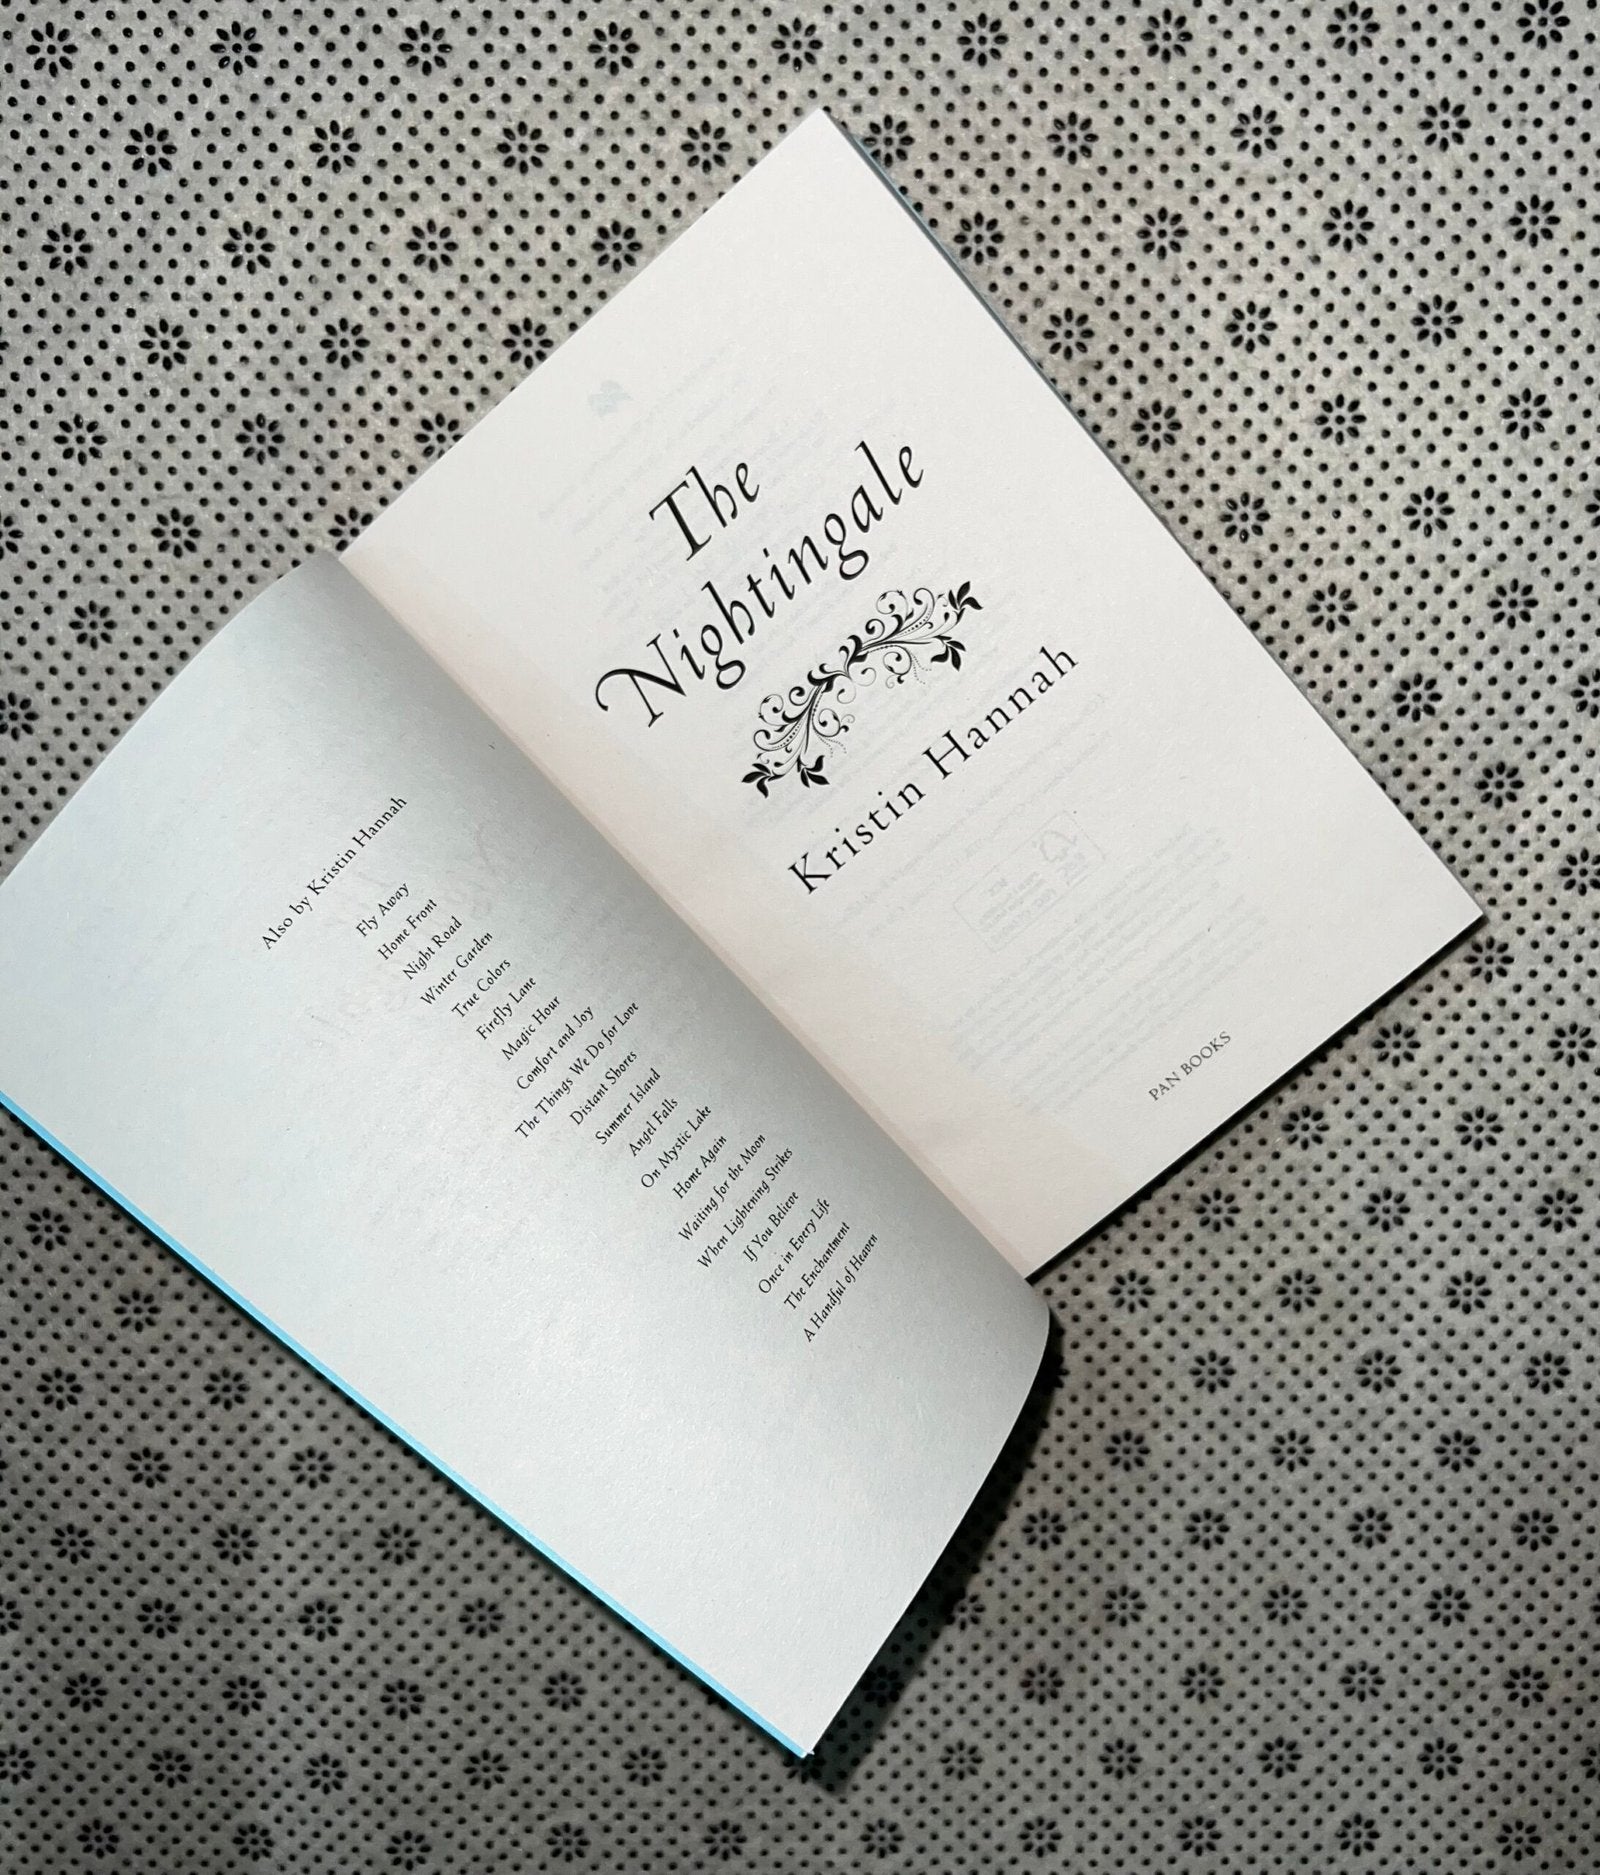 Also by Kristin Hannah
Fly Away
Home Front
Night Road
Winter Garden
True Colors
Firefly Lane
Magic Hour
Comfort and Joy
The Things We Do for Love
Distant Shores
Summer Island
Angel Falls
On Mystic Lake
Home Again
Waiting for the Moon
When Lightening Strikes
If You Believe
Once in Every Life
The Enchantment
A Handful of Heaven
The
Nightingale
Kristin Hannah
PAN BOOKS